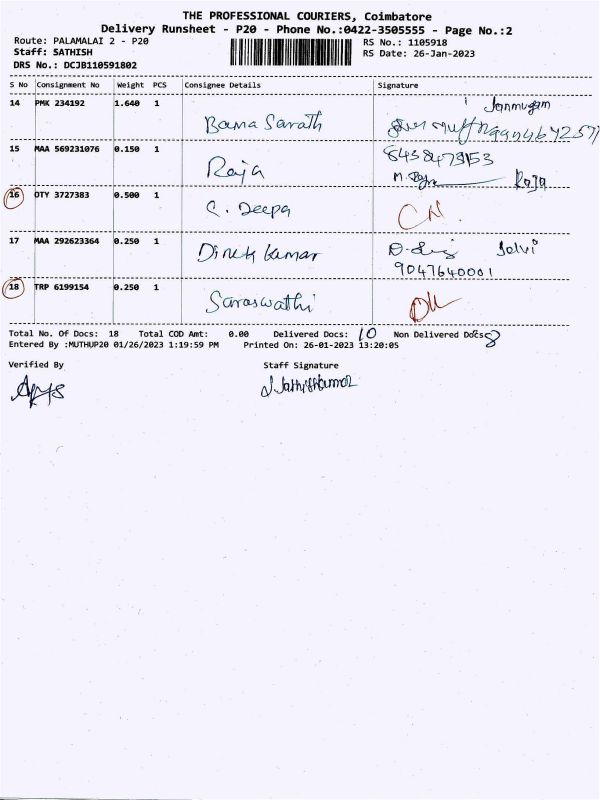 THE PROFESSIONAL COURIERS, Coimbatore
Delivery Runsheet - P20 - Phone No.:0422-3505555 - Page No.:2
Route: PALAMALAI 2 - P20
RS No.: 1105918
Staff: SATHISH
RS Date: 26-Jan-2023
DRS No.: DCJB110591802
S No Consignment No Weight PCS Consignee Details Signature
14 PMK 234192 1.640 1 Bama Sarath
15 MAA 569231076 0.150 1 Raja 8438473153
Raja
16 OTY 3727383 0.500 1 C. Deepa
17 MAA 292623364 0.250 1 Dinesh kumar Selvi
9047640001
18 TRP 6199154 0.250 1 Saraswathi
Total No. Of Docs: 18 Total COD Amt: 0.00 Delivered Docs: 10 Non Delivered Docs: 8
Entered By :MUTHUP20 01/26/2023 1:19:59 PM Printed On: 26-01-2023 13:20:05
Verified By Staff Signature